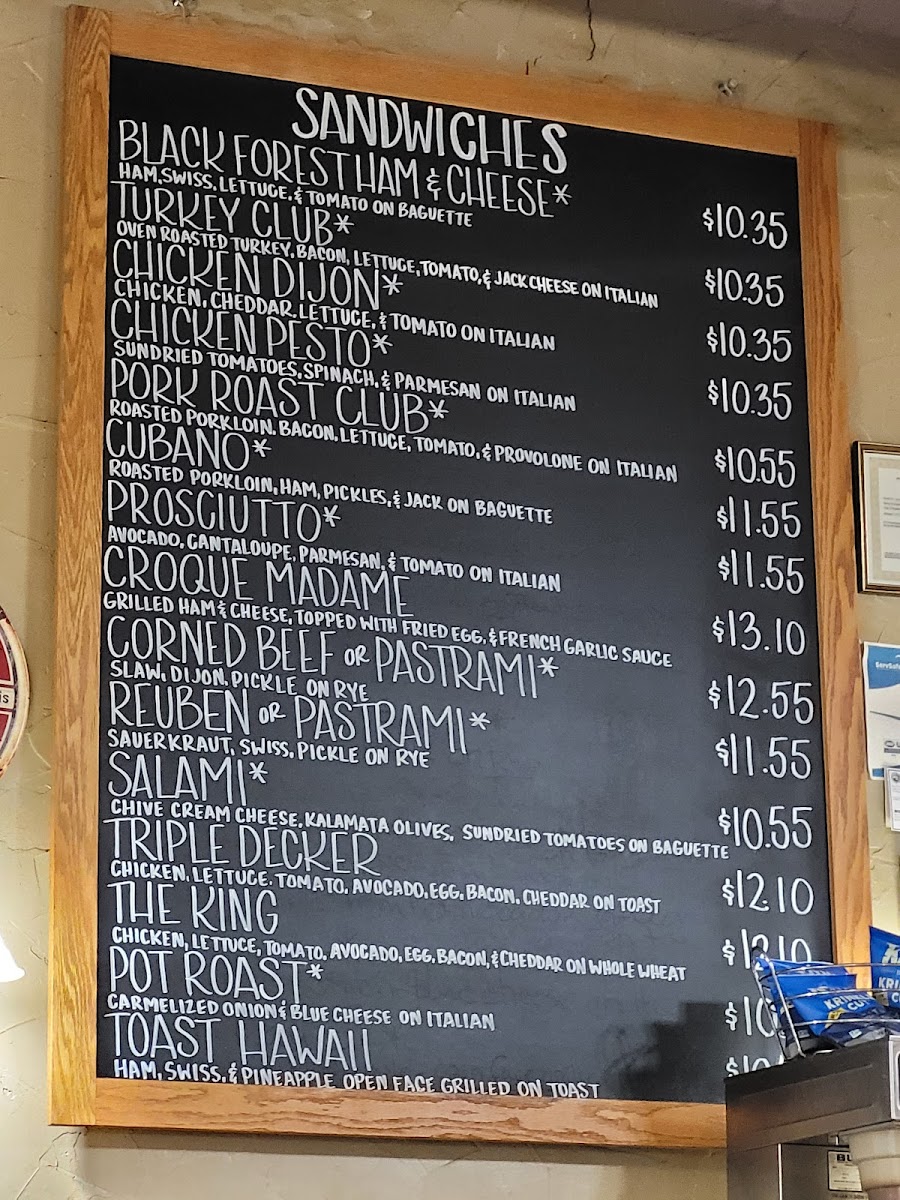 SANDWICHES
BLACK FOREST HAM & CHEESE* $10.35
HAM, SWISS, LETTUCE, & TOMATO ON BAGUETTE
TURKEY CLUB* $10.35
OVEN ROASTED TURKEY, BACON, LETTUCE, TOMATO, & JACK CHEESE ON ITALIAN
CHICKEN DIJON* $10.35
CHICKEN, CHEDDAR, LETTUCE, & TOMATO ON ITALIAN
CHICKEN PESTO* $10.35
SUNDRIED TOMATOES, SPINACH, & PARMESAN ON ITALIAN
PORK ROAST CLUB* $10.55
ROASTED PORKLOIN, BACON, LETTUCE, TOMATO, & PROVOLONE ON ITALIAN
CUBANO* $11.55
ROASTED PORKLOIN, HAM, PICKLES, & JACK ON BAGUETTE
PROSCIUTTO* $11.55
AVOCADO, CANTALOUPE, PARMESAN, & TOMATO ON ITALIAN
CROQUE MADAME $13.10
GRILLED HAM & CHEESE, TOPPED WITH FRIED EGG, & FRENCH GARLIC SAUCE
CORNED BEEF OR PASTRAMI* $12.55
SLAW, DIJON, PICKLE, ON RYE
REUBEN OR PASTRAMI* $11.55
SAUERKRAUT, SWISS, PICKLE ON RYE
SALAMI* $10.55
CHIVE CREAM CHEESE, KALAMATA OLIVES, SUNDRIED TOMATOES ON BAGUETTE
TRIPLE DECKER $12.10
CHICKEN, LETTUCE, TOMATO, AVOCADO, EGG, BACON, CHEDDAR ON TOAST
THE KING $12.10
CHICKEN, LETTUCE, TOMATO, AVOCADO, EGG, BACON, & CHEDDAR ON WHOLE WHEAT
POT ROAST* $10
CARMELIZED ONION & BLUE CHEESE ON ITALIAN
TOAST HAWAII
HAM, SWISS, & PINEAPPLE OPEN FACE GRILLED ON TOAST